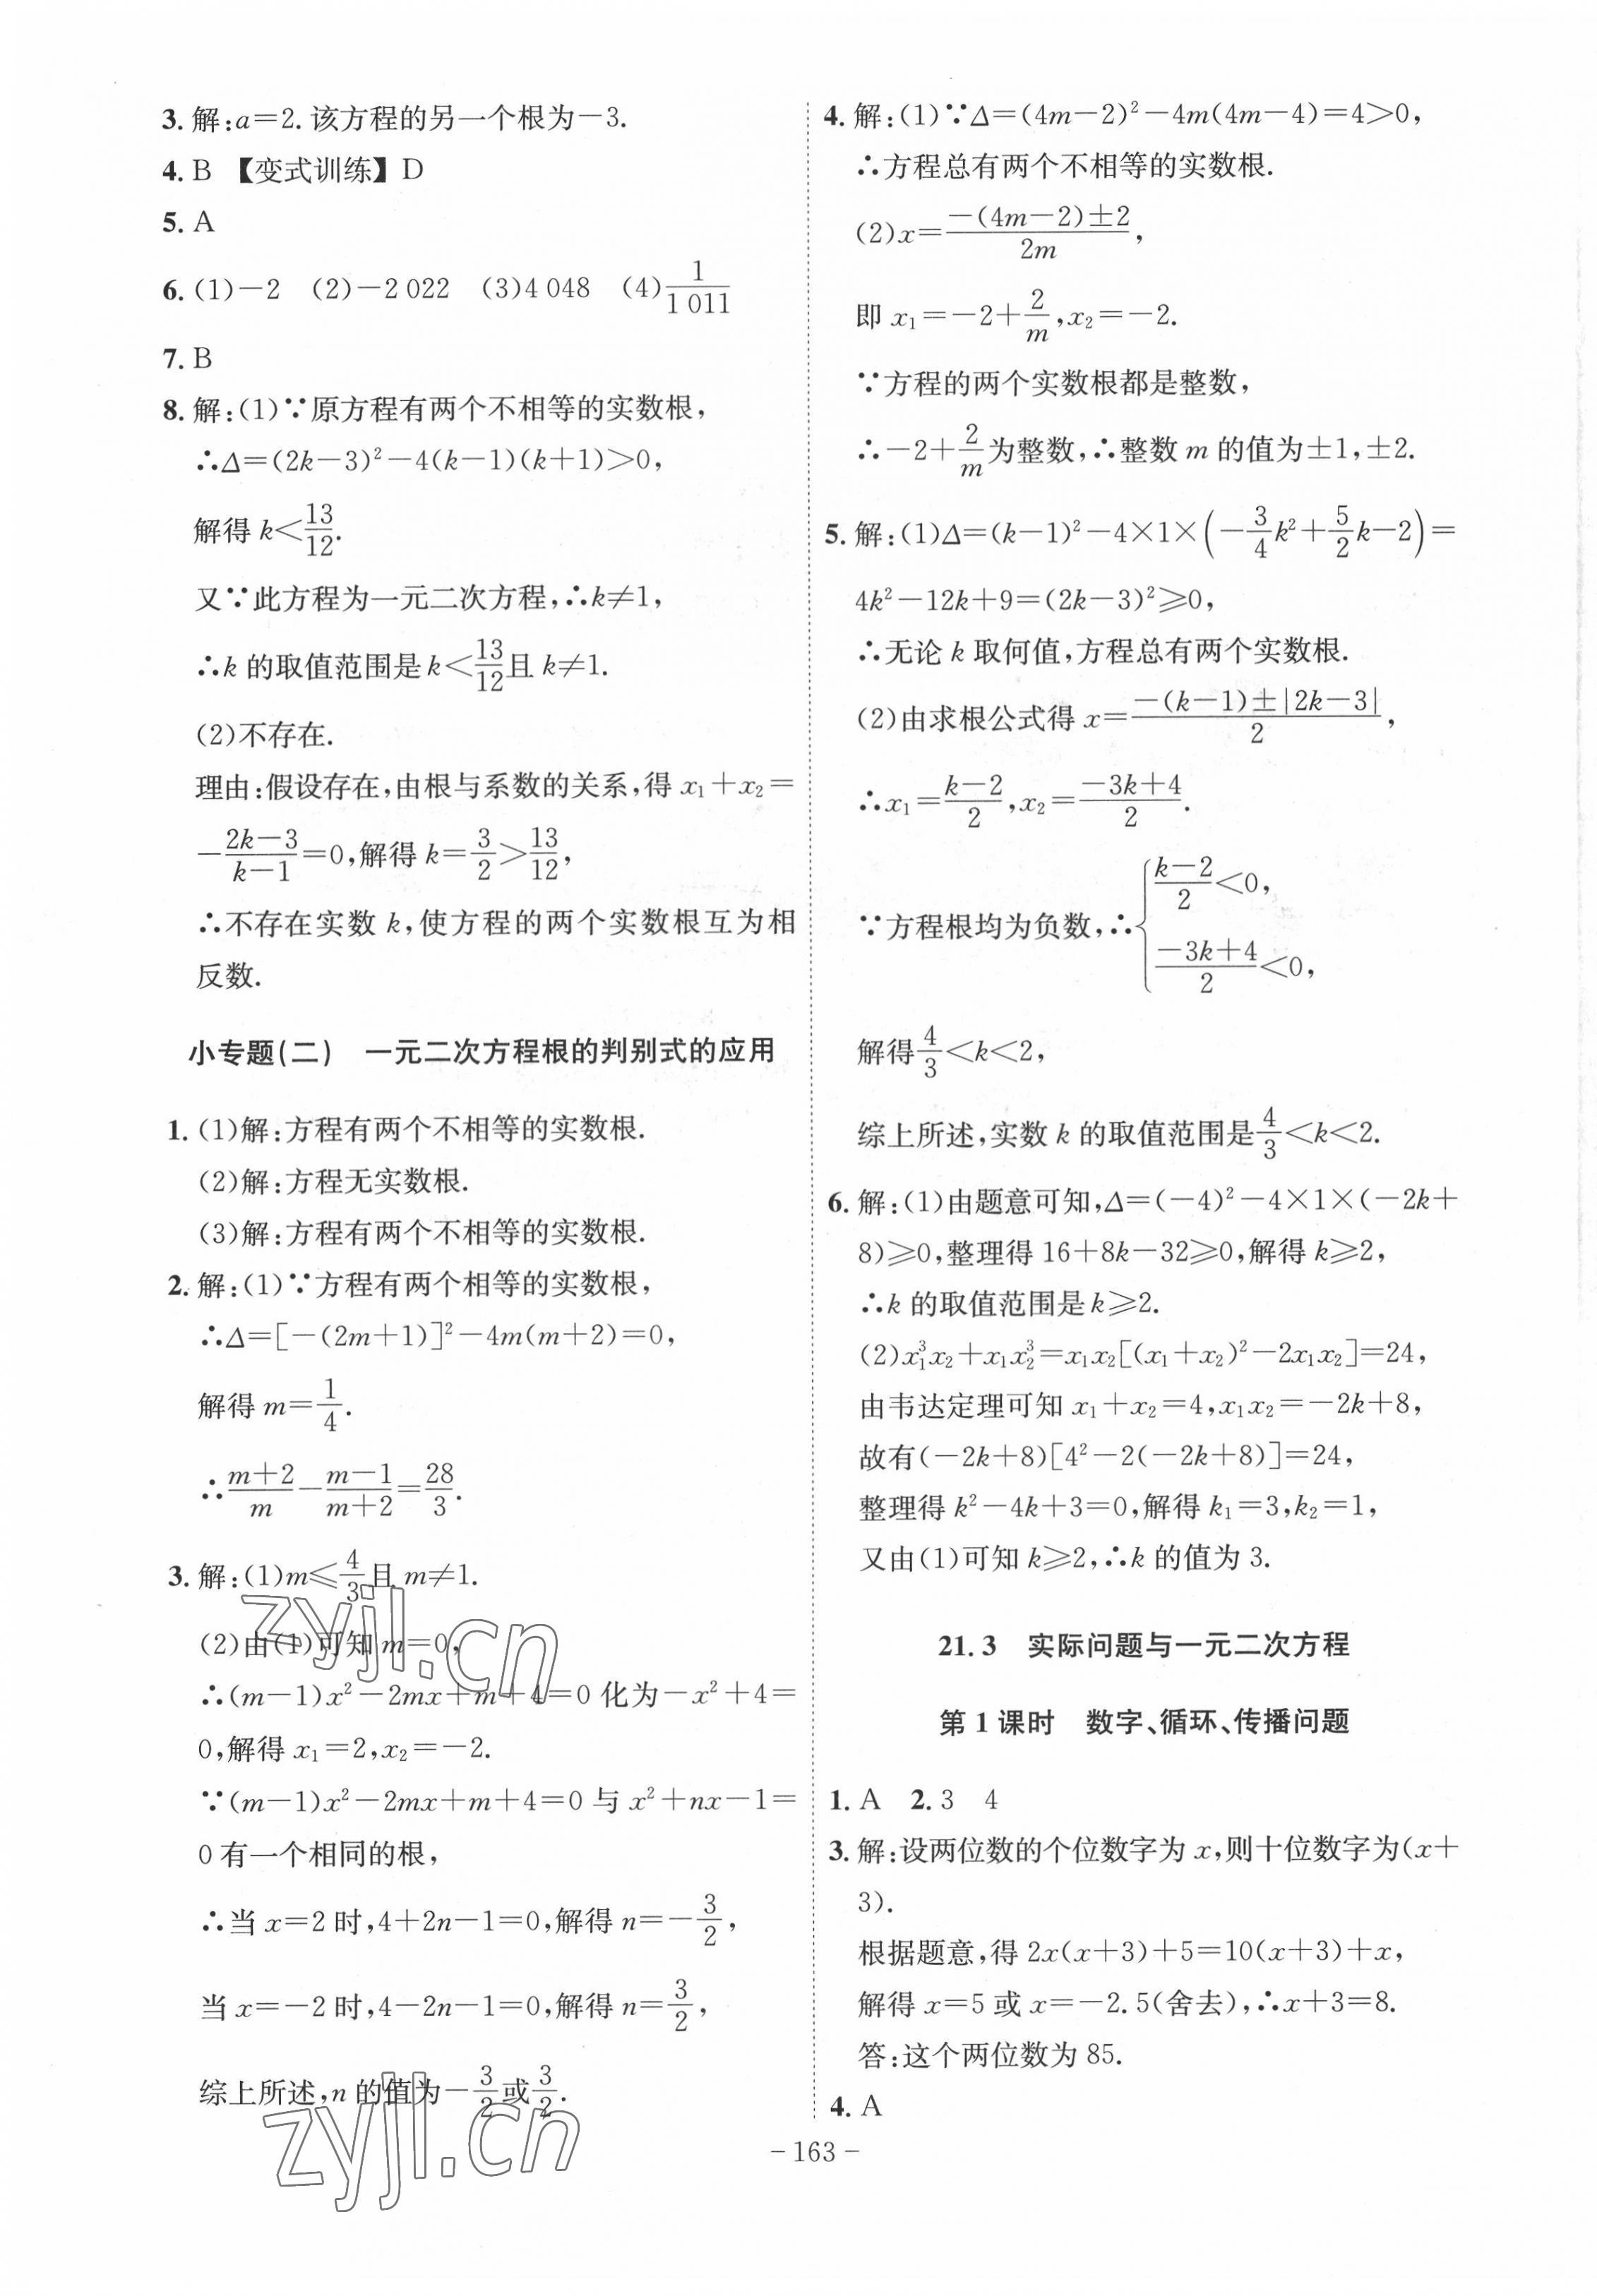 3. 解:a=2. 该方程的另一个根为-3.
4. B 【变式训练】D
5. A
6. (1)-2 (2)-2 022 (3)4 048 (4)1/1 011
7. B
8. 解:(1)∵原方程有两个不相等的实数根,
∴Δ=(2k-3)²-4(k-1)(k+1)>0,
解得 k<13/12.
又∵此方程为一元二次方程,∴k≠1,
∴k 的取值范围是 k<13/12且 k≠1.
(2)不存在.
理由:假设存在,由根与系数的关系,得 x₁+x₂=
-(2k-3)/(k-1)=0,解得 k=3/2>13/12,
∴不存在实数 k,使方程的两个实数根互为相
反数.
小专题(二) 一元二次方程根的判别式的应用
1. (1)解:方程有两个不相等的实数根.
(2)解:方程无实数根.
(3)解:方程有两个不相等的实数根.
2. 解:(1)∵方程有两个相等的实数根,
∴Δ=[-(2m+1)]²-4m(m+2)=0,
解得 m=1/4.
∴(m+2)/m-(m-1)/(m+2)=28/3.
3. 解:(1)m≤4/3且 m≠1.
(2)由(1)可知 m=0,
∴(m-1)x²-2mx+m+4=0 化为-x²+4=
0,解得 x₁=2,x₂=-2.
∵(m-1)x²-2mx+m+4=0 与 x²+nx-1=
0 有一个相同的根,
∴当 x=2 时,4+2n-1=0,解得 n=-3/2,
当 x=-2 时,4-2n-1=0,解得 n=3/2,
综上所述,n 的值为-3/2或3/2.
4. 解:(1)∵Δ=(4m-2)²-4m(4m-4)=4>0,
∴方程总有两个不相等的实数根.
(2)x=(-(4m-2)±2)/2m,
即 x₁=-2+2/m,x₂=-2.
∵方程的两个实数根都是整数,
∴-2+2/m为整数,∴整数 m 的值为±1,±2.
5. 解:(1)Δ=(k-1)²-4×1×(-3/4k²+5/2k-2)=
4k²-12k+9=(2k-3)²≥0,
∴无论 k 取何值,方程总有两个实数根.
(2)由求根公式得 x=(-(k-1)±|2k-3|)/2,
∴x₁=(k-2)/2,x₂=(-3k+4)/2.
∵方程根均为负数,∴{(k-2)/2<0,
(-3k+4)/2<0,
解得4/3<k<2,
综上所述,实数 k 的取值范围是4/3<k<2.
6. 解:(1)由题意可知,Δ=(-4)²-4×1×(-2k+
8)≥0,整理得 16+8k-32≥0,解得 k≥2,
∴k 的取值范围是 k≥2.
(2)x₁³x₂+x₁x₂³=x₁x₂[(x₁+x₂)²-2x₁x₂]=24,
由韦达定理可知 x₁+x₂=4,x₁x₂=-2k+8,
故有(-2k+8)[4²-2(-2k+8)]=24,
整理得 k²-4k+3=0,解得 k₁=3,k₂=1,
又由(1)可知 k≥2,∴k 的值为 3.
21.3 实际问题与一元二次方程
第 1 课时 数字、循环、传播问题
1. A 2. 3 4
3. 解:设两位数的个位数字为 x,则十位数字为(x+
3).
根据题意,得 2x(x+3)+5=10(x+3)+x,
解得 x=5 或 x=-2.5(舍去),∴x+3=8.
答:这个两位数为 85.
4. A
- 163 -
zyjl.cn
zyjl.cn